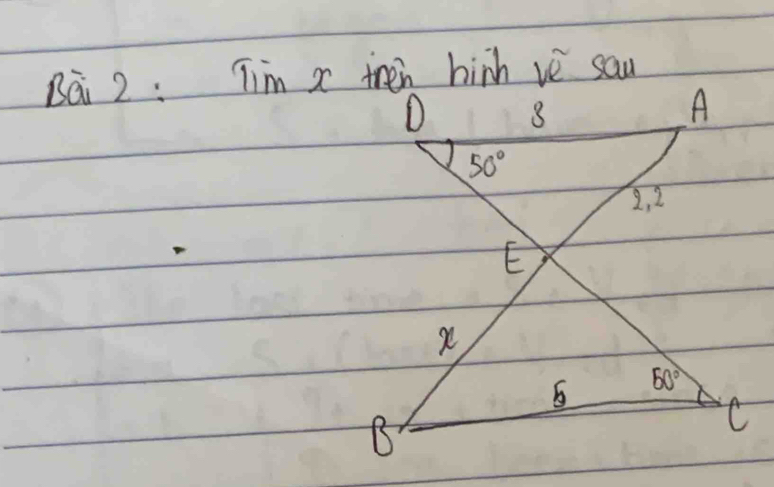 Bài 2: Tìm x trên hình vẽ sau
D 3 A
50°
2,2
E
x
50°
5
B C